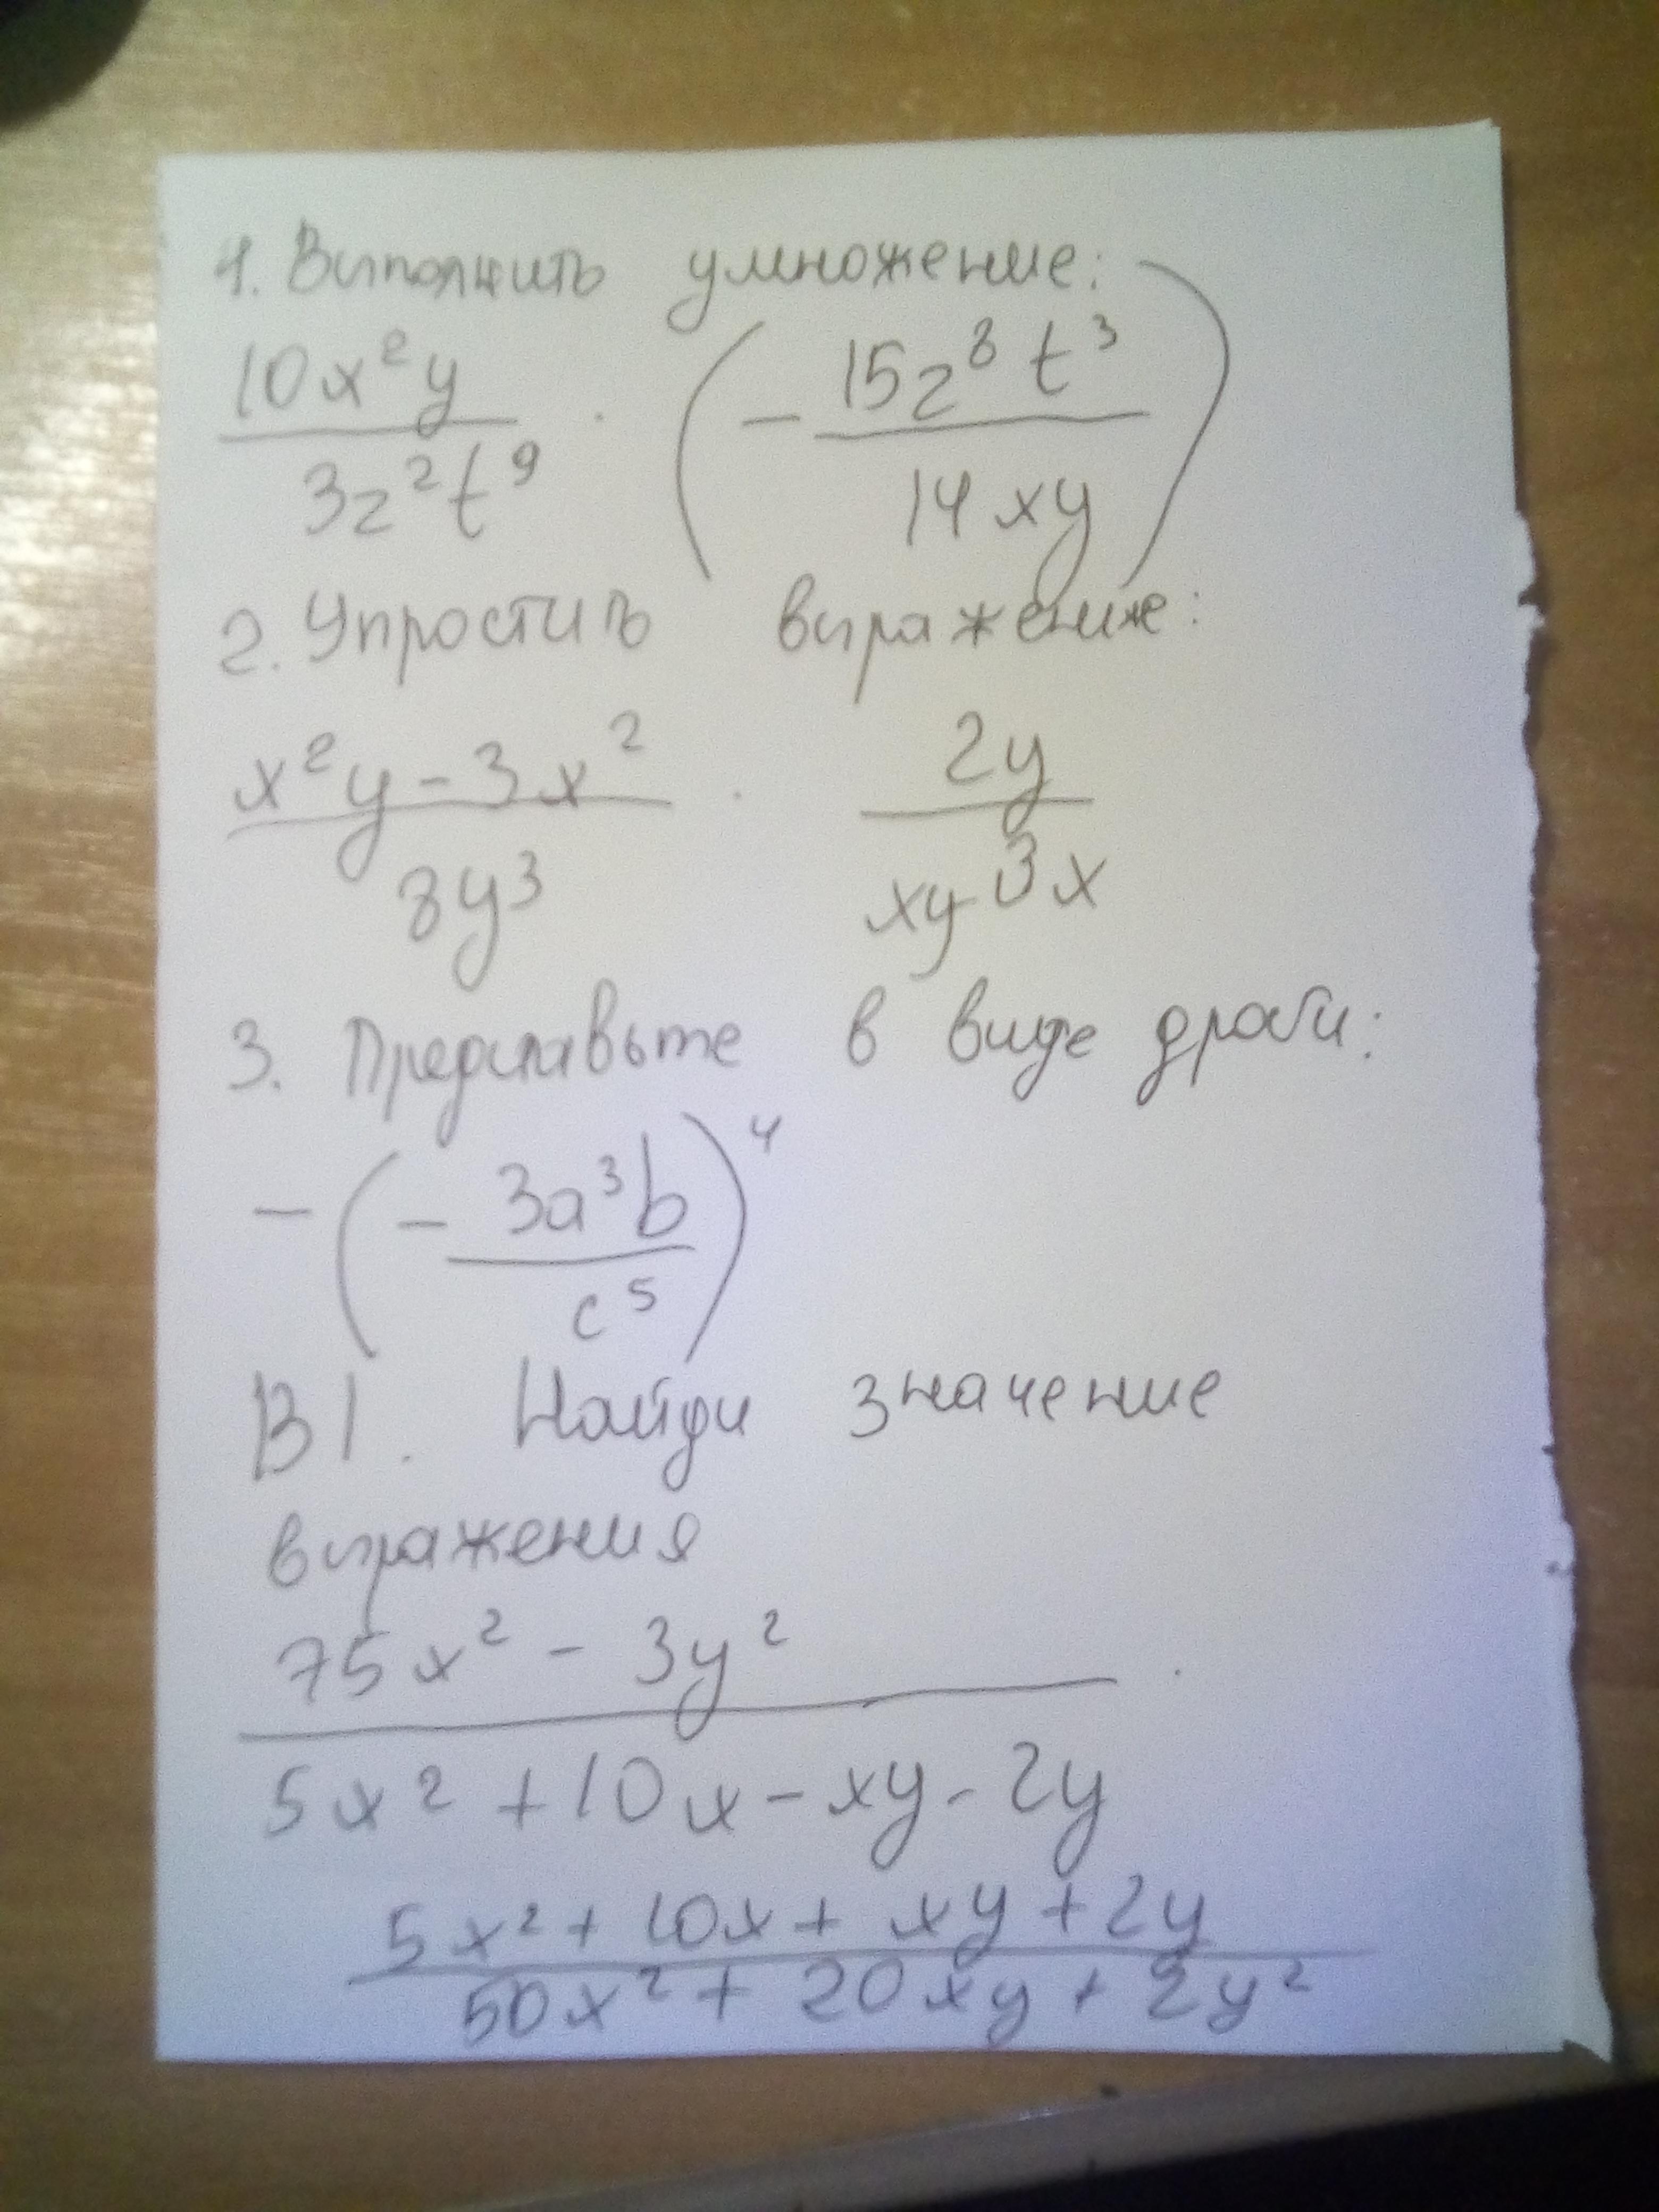 1. Выполнить умножение:
10x²y / 3z²t⁹ · (− 15z⁸t³ / 14xy)
2. Упростить выражение:
x²y − 3x² / 8y³ · 2y / xy 3x
3. Представьте в виде дроби:
− (− 3a³b / c⁵)⁴
В1. Найди значение
выражения
75x² − 3y² ·
5x² + 10x − xy − 2y
5x² + 10x + xy + 2y
50x² + 20xy + 2y²